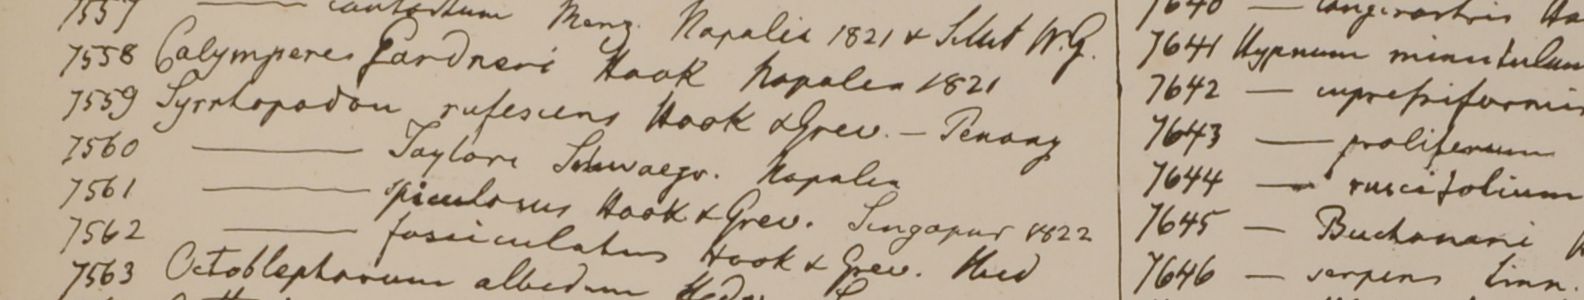 7557 —— contortum Menz. Napalia 1821 & Silhet W.G.
7558 Calymperes Gardneri Hook Napalia 1821
7559 Syrrhopodon rufescens Hook & Grev. — Penang
7560 —— Taylori Schwaegr. Napalia
7561 —— spiculosus Hook & Grev. Singapur 1822
7562 —— fasciculatus Hook & Grev. Ibid
7563 Octoblepharum albidum Hedw.
7640 — longirostris
7641 Hypnum minutulum
7642 — cupressiformis
7643 — proliferum
7644 — ruscifolium
7645 — Buchanani
7646 — serpens Linn.